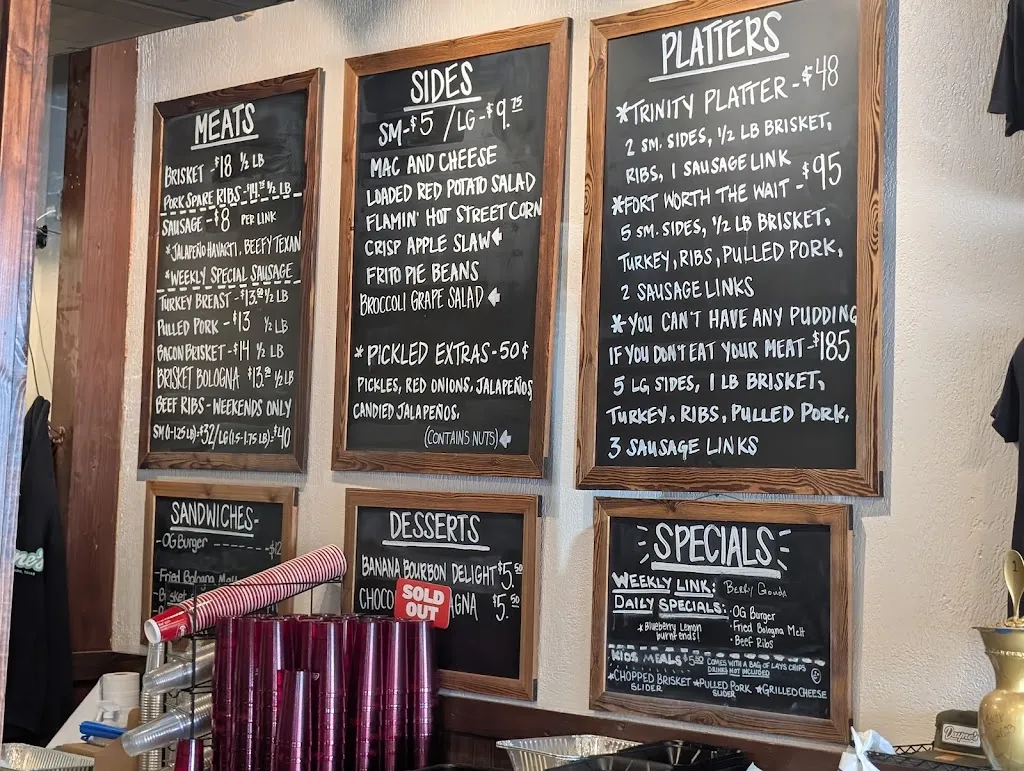 MEATS
BRISKET -$18 ½ LB
PORK SPARE RIBS -$14.75 ½ LB
SAUSAGE -$8 PER LINK
*JALAPEÑO HAVARTI, BEEFY TEXAN
*WEEKLY SPECIAL SAUSAGE
TURKEY BREAST -$13.00 ½ LB
PULLED PORK -$13 ½ LB
BACON BRISKET -$14 ½ LB
BRISKET BOLOGNA $13.00 ½ LB
BEEF RIBS - WEEKENDS ONLY
SM (1-1.25 LB)-$32/LG (1.5-1.75 LB)-$40
SIDES
SM-$5 /LG-$9.75
MAC AND CHEESE
LOADED RED POTATO SALAD
FLAMIN' HOT STREET CORN
CRISP APPLE SLAW
FRITO PIE BEANS
BROCCOLI GRAPE SALAD
* PICKLED EXTRAS-50¢
PICKLES, RED ONIONS, JALAPEÑOS,
CANDIED JALAPEÑOS.
(CONTAINS NUTS)
PLATTERS
*TRINITY PLATTER -$48
2 SM. SIDES, ½ LB BRISKET,
RIBS, 1 SAUSAGE LINK
*FORT WORTH THE WAIT -$95
5 SM. SIDES, ½ LB BRISKET,
TURKEY, RIBS, PULLED PORK,
2 SAUSAGE LINKS
*YOU CAN'T HAVE ANY PUDDING
IF YOU DON'T EAT YOUR MEAT -$185
5 LG SIDES, 1 LB BRISKET,
TURKEY, RIBS, PULLED PORK,
3 SAUSAGE LINKS
SANDWICHES-
-OG Burger ---- -$12
-Fried Bologna Melt
DESSERTS
BANANA BOURBON DELIGHT $5.50
CHOCO AGNA $5.50
SOLD
OUT
SPECIALS
WEEKLY LINK: Berry Gouda
DAILY SPECIALS: ·OG Burger
·Fried Bologna Melt
·Beef Ribs
*Blueberry Lemon
burnt ends!
KIDS MEALS $5.50 COMES WITH A BAG OF LAYS CHIPS
DRINKS NOT INCLUDED
*CHOPPED BRISKET SLIDER *PULLED PORK SLIDER *GRILLED CHEESE